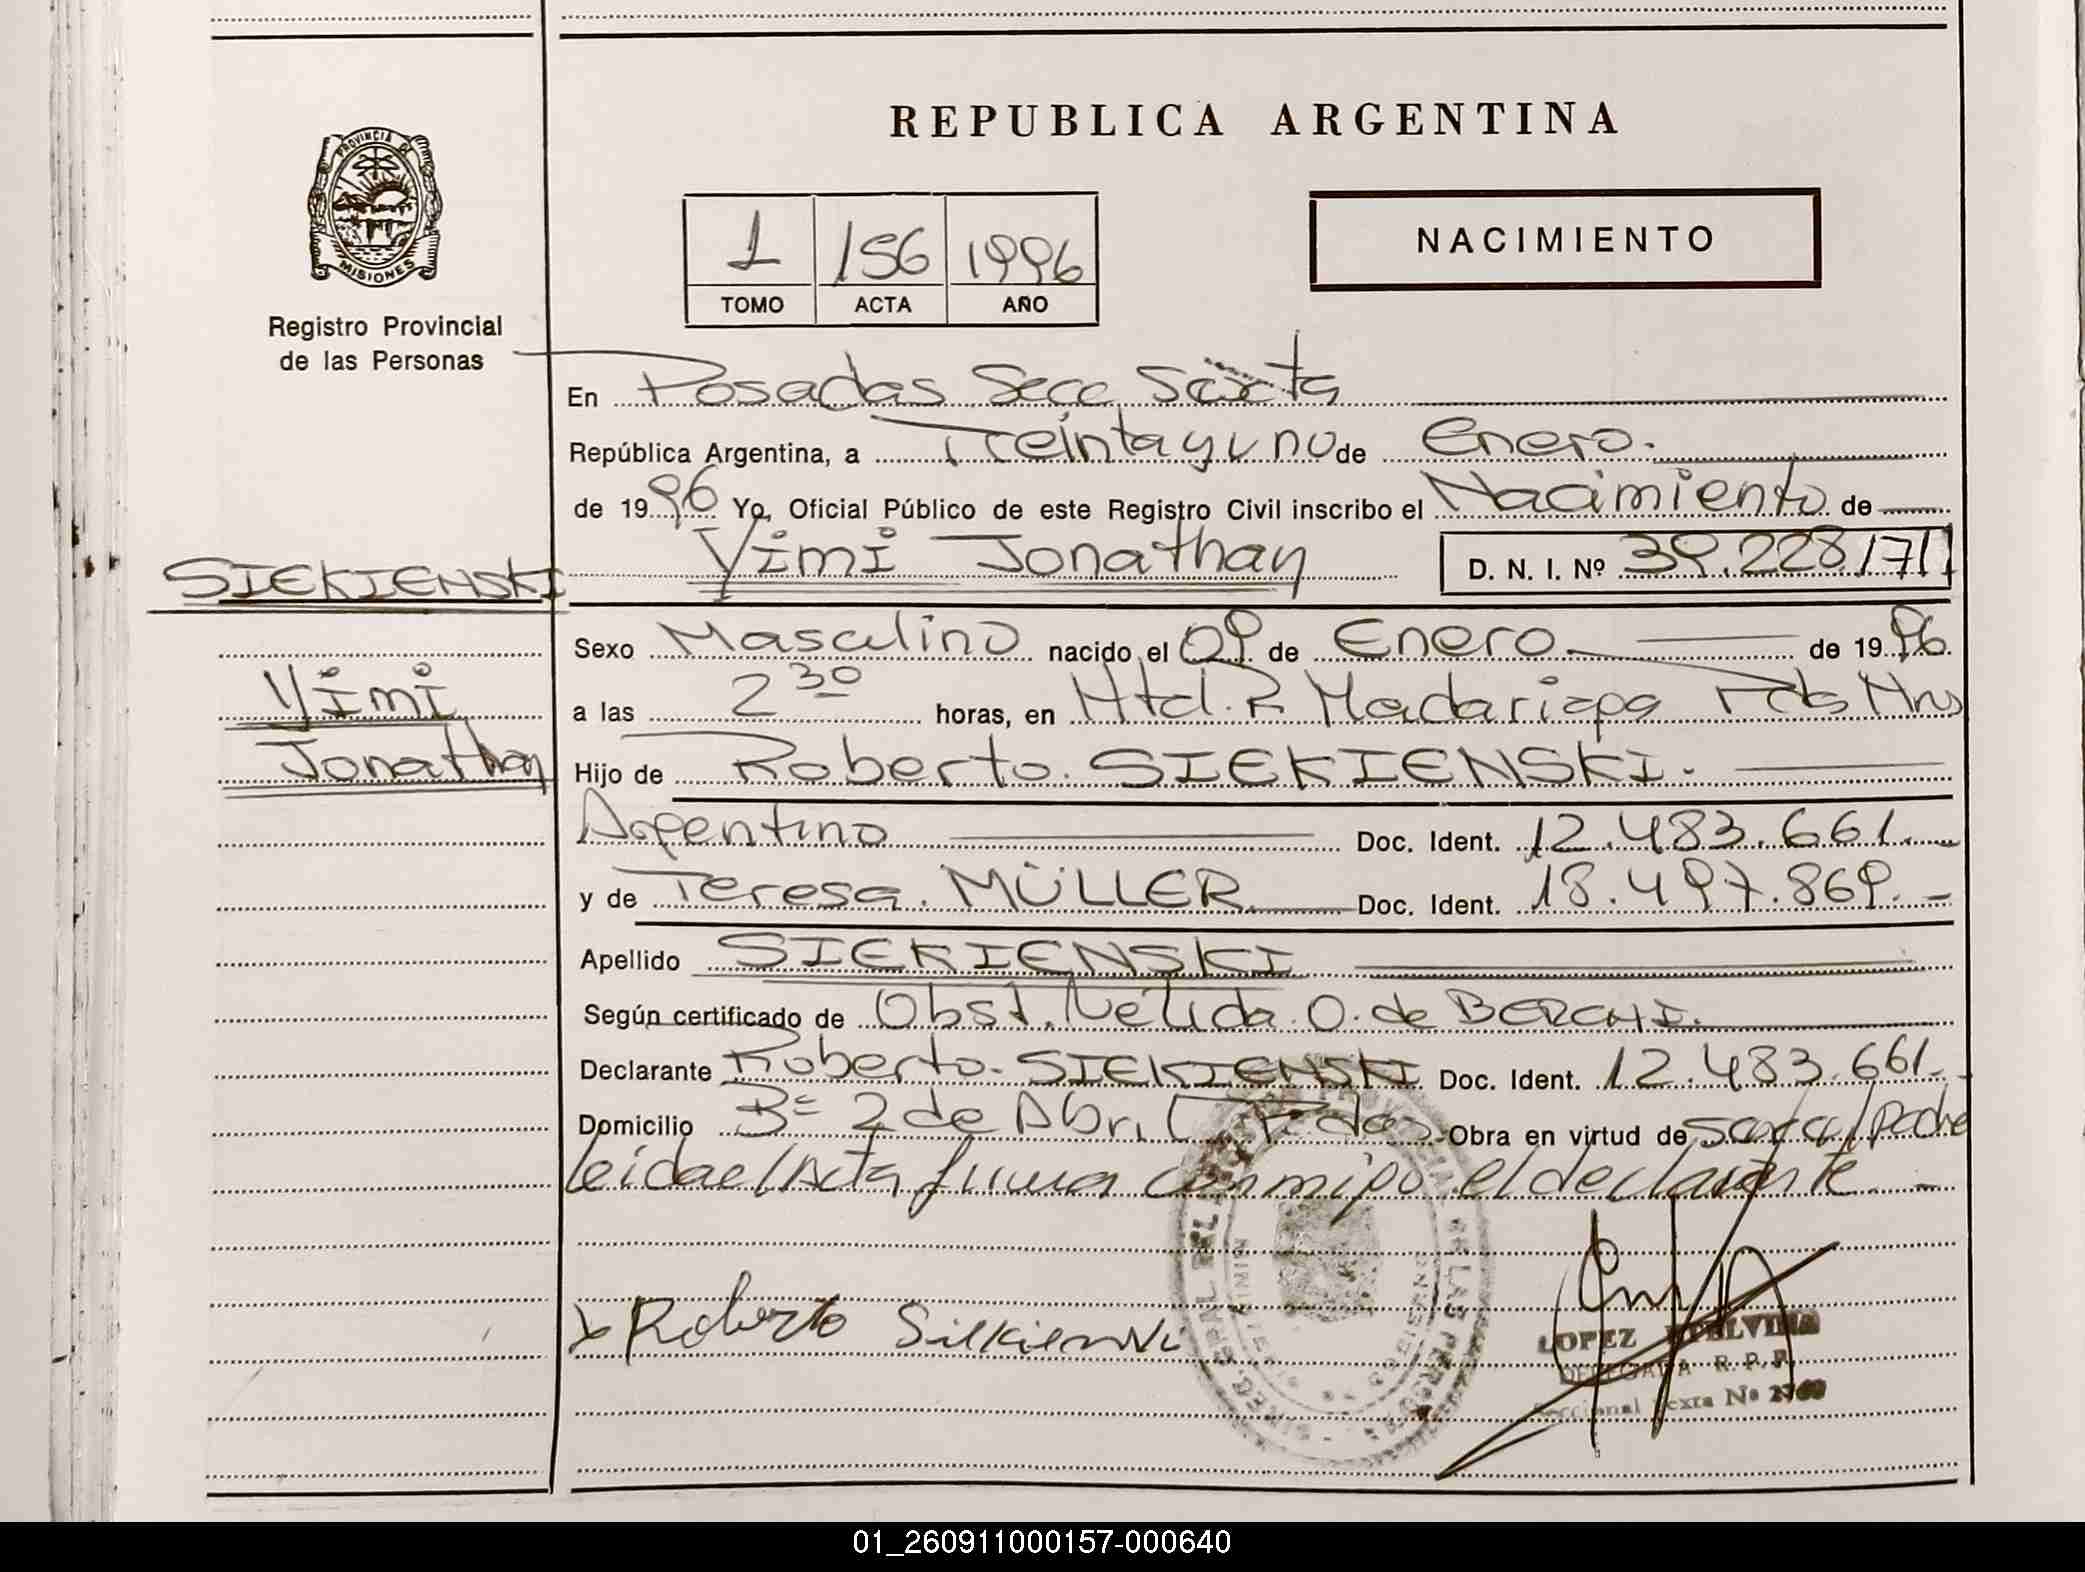 REPUBLICA ARGENTINA
PROVINCIA DE
MISIONES
Registro Provincial
de las Personas
1 156 1996
TOMO ACTA AÑO
NACIMIENTO
En Posadas Secc Sexta
República Argentina, a Treinta y uno de Enero.
de 1996 Yo, Oficial Público de este Registro Civil inscribo el Nacimiento de
SIEKIENSKI
Yimi Jonathan D. N. I. Nº 39.228.171
Sexo Masculino nacido el 09 de Enero de 1996.
Yimi
a las 2 30 horas, en Htal. R Madariaga Pdas Mnes
Jonathan
Hijo de Roberto. SIEKIENSKI.
Argentino Doc. Ident. 12.483.661.
y de Teresa. MÜLLER Doc. Ident. 18.497.869.-
Apellido SIEKIENSKI
Según certificado de Obst. Nelida O. de BERCHI.
Declarante Roberto. SIEKIENSKI Doc. Ident. 12.483.661.-
Domicilio Bº 2 de Abril Pdas Obra en virtud de ser el padre
leida el Acta firma conmigo el declarante.-
x Roberto Siekienski
LOPEZ ETELVINA
DELEGADA R. P. P.
Seccional Sexta Nº 2760
01_260911000157-000640